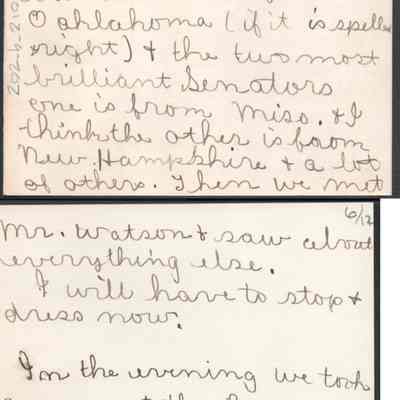 oklahoma (if it is spelled
right) & the two most
brilliant Senators
one is from Miss. & I
think the other is from
New Hampshire & a lot
of others. Then we met
6/12
Mr. Watson & saw about
everything else.
I will have to stop &
dress now.
In the evening we took